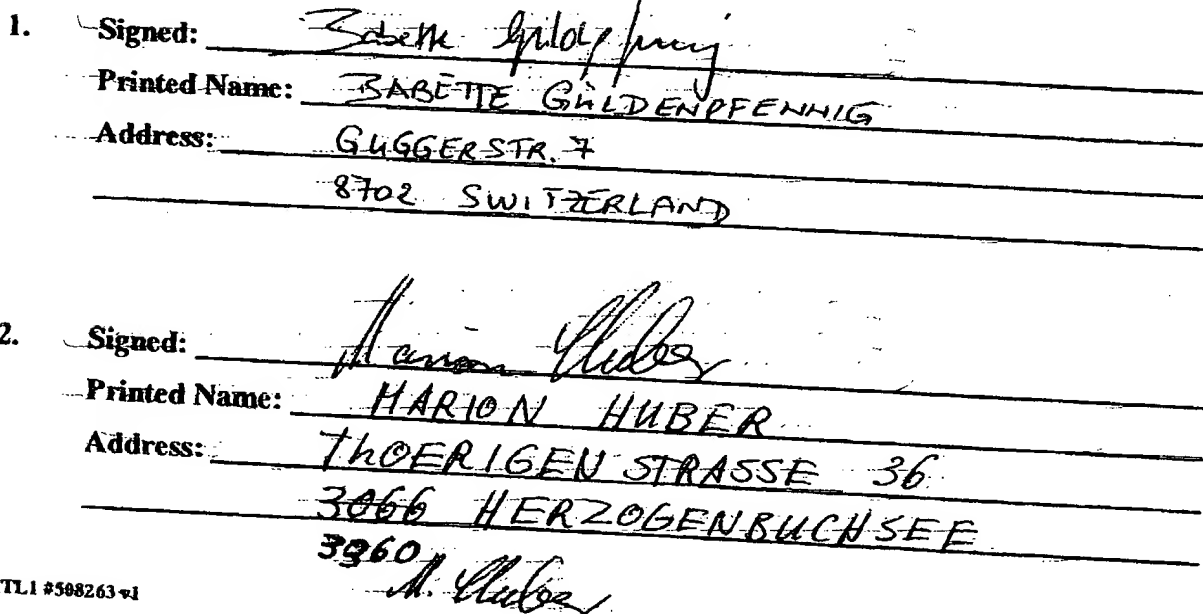 1. Signed: Babette Güldenpfennig
Printed Name: BABETTE GÜLDENPFENNIG
Address: GUGGERSTR. 7
8702 SWITZERLAND
2. Signed: Marion Huber
Printed Name: MARION HUBER
Address: ThOERIGENSTRASSE 36
3066 HERZOGENBUCHSEE
3360 M. Huber
TL1 #508263 v1